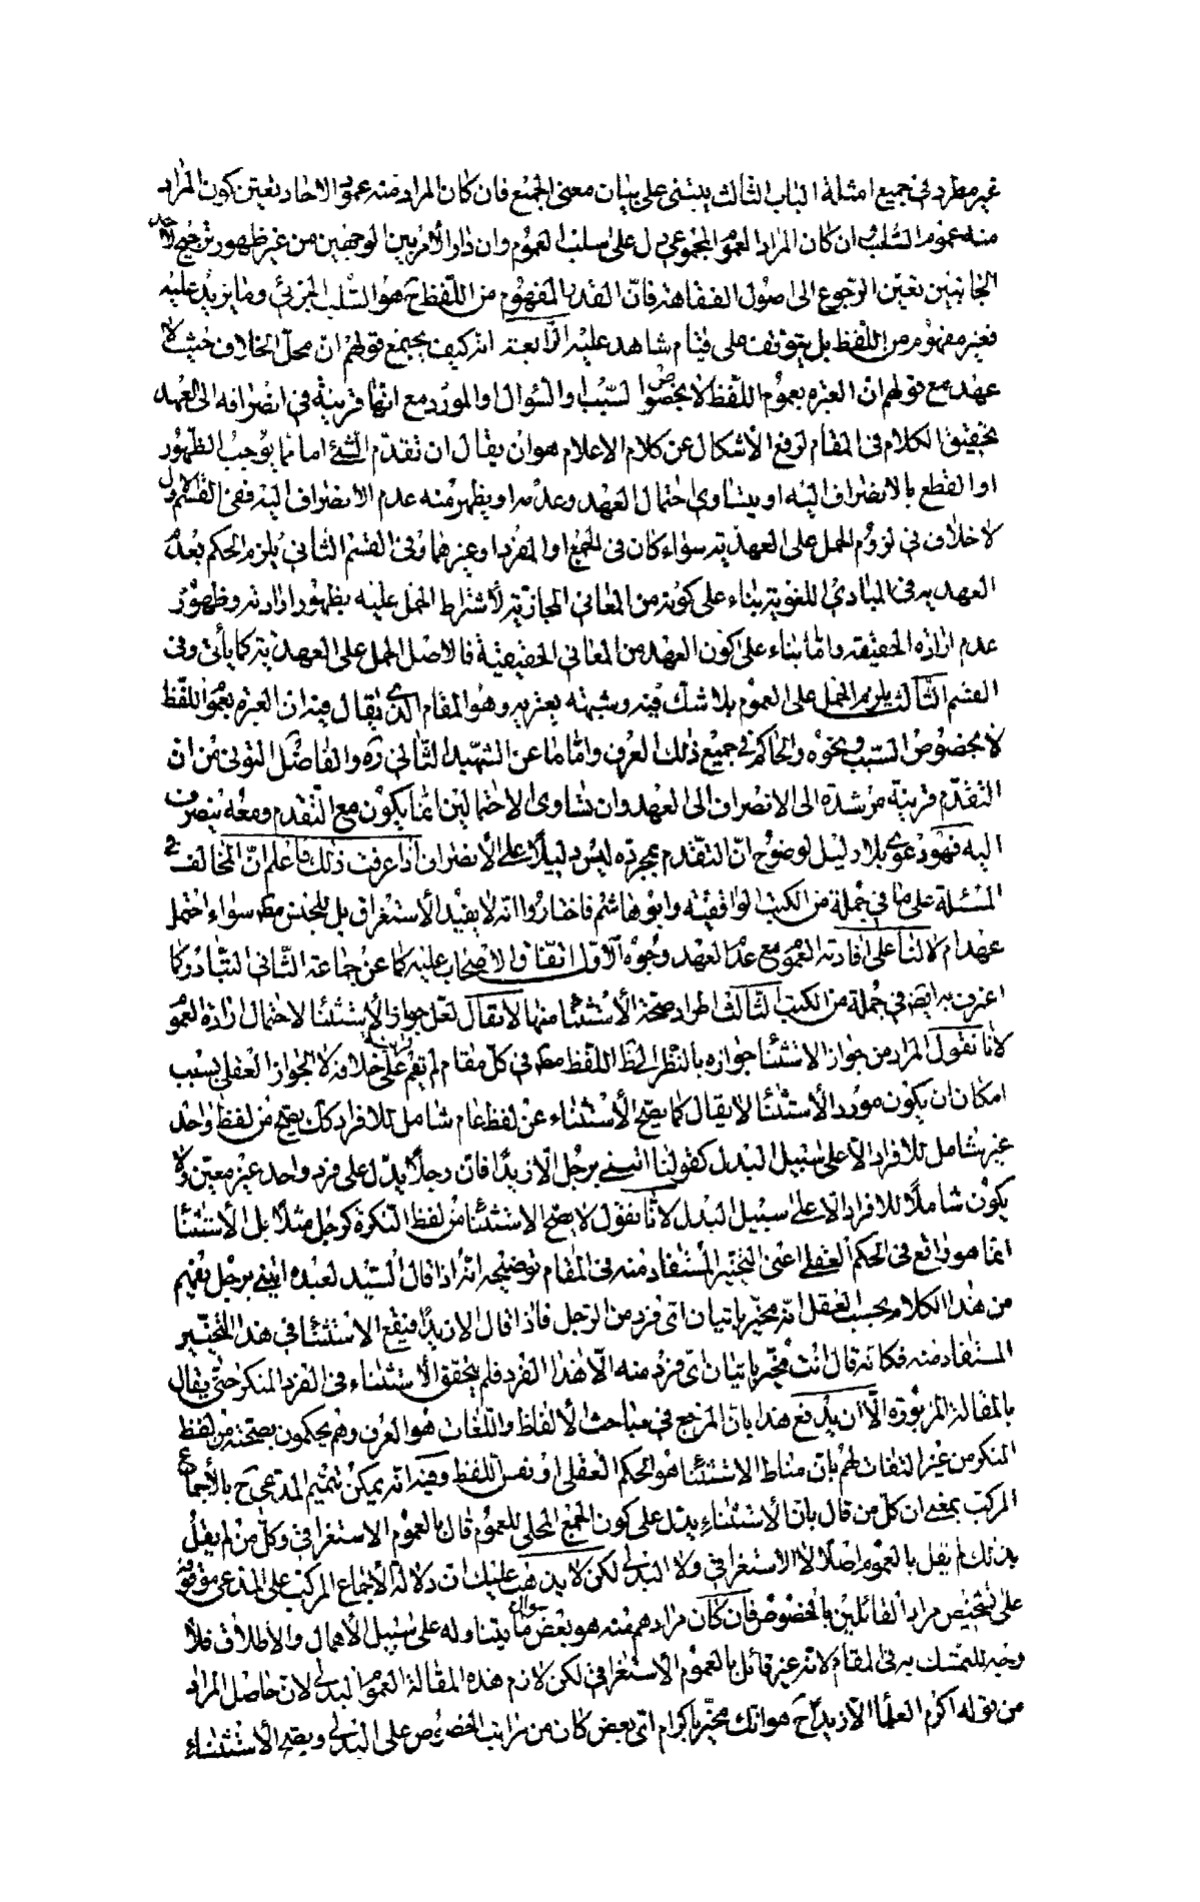 غير مطرد في جميع امثلة الباب الثالث يبتنى على بيان معنى الجمع فان كان المراد منه عموم الاحاد تعين كون المراد
منه عموم السلب وان كان المراد العموم المجموعي دل على سلب العموم وان دار الامر بين الوجهين من غير ظهور ترجيح لاحد
الجانبين تعين الرجوع الى اصول الفقاهة فان القدر المفهوم من اللفظ ح هو السلب الجزئي وما يزيد عليه
فغير مفهوم من اللفظ بل يتوقف على قيام شاهد عليه الرابعة انه كيف يجتمع قولهم ان محل الخلاف حيث لا
عهد مع قولهم ان العبرة بعموم اللفظ لا بخصوص السبب والسؤال والمورد مع انها قرينة في انصرافه الى العهد
تحقيق الكلام في المقام لرفع الاشكال عن كلام الاعلام هو ان يقال ان تقدم الشئ اما مما يوجب الظهور
او القطع بالانصراف اليه او يتساوى احتمال العهد وعدمه او يظهر منه عدم الانصراف اليه ففي القسم الاول
لا خلاف في لزوم الحمل على العهدية سواء كان في الجمع او المفرد او غيرهما وفي القسم الثاني يلزم الحكم بعدم
العهدية في المبادي اللغوية بناء على كونه من المعاني المجازية لاشتراط الحمل عليه بظهور ارادته وظهور
عدم ارادة الحقيقة واما بناء على كون العهد من المعاني الحقيقية فالاصل الحمل على العهدية كما يأتي وفي
القسم الثالث يلزم الحمل على العموم بلا شك فيه وشبهة يعتريه وهو المقام الذي يقال فيه ان العبرة بعموم اللفظ
لا بخصوص السبب ونحوه والحاكم في جميع ذلك العرف واما ما عن الشهيد الثاني ره والفاضل التوني من ان
التقدم قرينة مرشدة الى الانصراف الى العهد وان تساوى الاحتمالين انما يكون مع التقدم ومعه ينصرف
اليه فهو دعوى بلا دليل لوضوح ان التقدم بمجرده ليس دليلا على الانصراف اذا عرفت ذلك فاعلم ان المخالف في
المسئلة على ما في جملة من الكتب الواقفية وابو هاشم فاختاروا انه لا يفيد الاستغراق بل للجنس مط سواء احتمل
عهد ام لا لنا على افادته العموم مع عدم العهد وجوه الاول اتفاق الاصحاب عليه كما عن جماعة الثاني التبادر كما
اعترف به ايضا في جملة من الكتب الثالث اطراد صحة الاستثناء منها لا يقال لعل جواز الاستثناء لاحتمال ارادة العموم
لانا نقول المراد من جواز الاستثناء جوازه بالنظر الى ظ اللفظ مط في كل مقام لم يقم قرينة على خلافه لا الجواز العقلي بسبب
امكان ان يكون مورد الاستثناء لا يقال كما يصح الاستثناء عن لفظ عام شامل للافراد كك يصح من لفظ واحد
غير شامل للافراد الا على سبيل البدل كقولنا ائتني برجل الا زيدا فان رجلا يدل على فرد واحد غير معين ولا
يكون شاملا للافراد الا على سبيل البدل لانا نقول لا يصح الاستثناء من لفظ النكرة كرجل مثلا بل الاستثناء
انما هو واقع في الحكم العقلي اعنى التخيير المستفاد منه في المقام توضيحه انه اذا قال السيد لعبده ايتني برجل يفهم
من هذا الكلام بحسب العقل انه مخير باتيان اى فرد من الرجل فاذا قال الا زيدا فيقع الاستثناء في هذا التخيير
المستفاد منه فكانه قال انت مخير باتيان اى فرد منه الا هذا الفرد فلم يتحقق الاستثناء في الفرد المنكر حتى يقال
بالمقالة المزبورة الا ان يدفع هذا بان المرجع في مباحث الالفاظ واللغات هو العرف وهم يحكمون بصحته من لفظ
المنكر من غير التفات لهم بان مناط الاستثناء هو الحكم العقلي او نفس اللفظ وفيه انه يمكن تتميم المدعى ح بالاجماع
المركب بمعنى ان كل من قال بان الاستثناء يدل على كون الجمع المحلى للعموم قال بالعموم الاستغراقي وكل من لم يقل
بذلك لم يقل بالعموم اصلا لا الاستغراقي ولا البدلي لكن لا يذهب عليك ان دلالة الاجماع المركب على المدعى موقوفة
على تشخيص مراد القائلين بالخصوص فان كان مرادهم منه هو بعض ما يتناوله على سبيل الاهمال والاطلاق فلا
وجه للتمسك به في المقام لانه غير قائل بالعموم الاستغراقي لكن لازم هذه المقالة العموم البدلي لان حاصل المراد
من قوله اكرم العلماء الا زيدا ح هو انك مخير باكرام اى بعض كان من مراتب الخصوص على البدلي ويصح الاستثناء